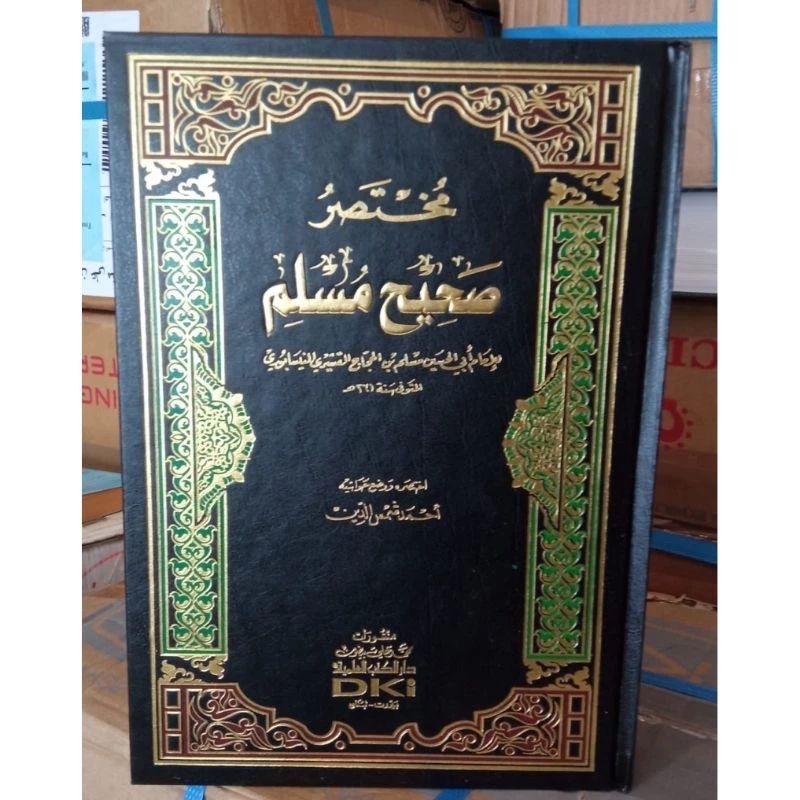 مُخْتَصَرُ
صَحِيْح مُسْلِم
للإمام أبي الحسين مسلم بن الحجاج القشيري النيسابوري
المتوفى سنة ٢٦١ هـ
اختصره ووضع حواشيه
أحمد شمس الدين
منشورات
محمد علي بيضون
دار الكتب العلمية
DKi
بيروت - لبنان